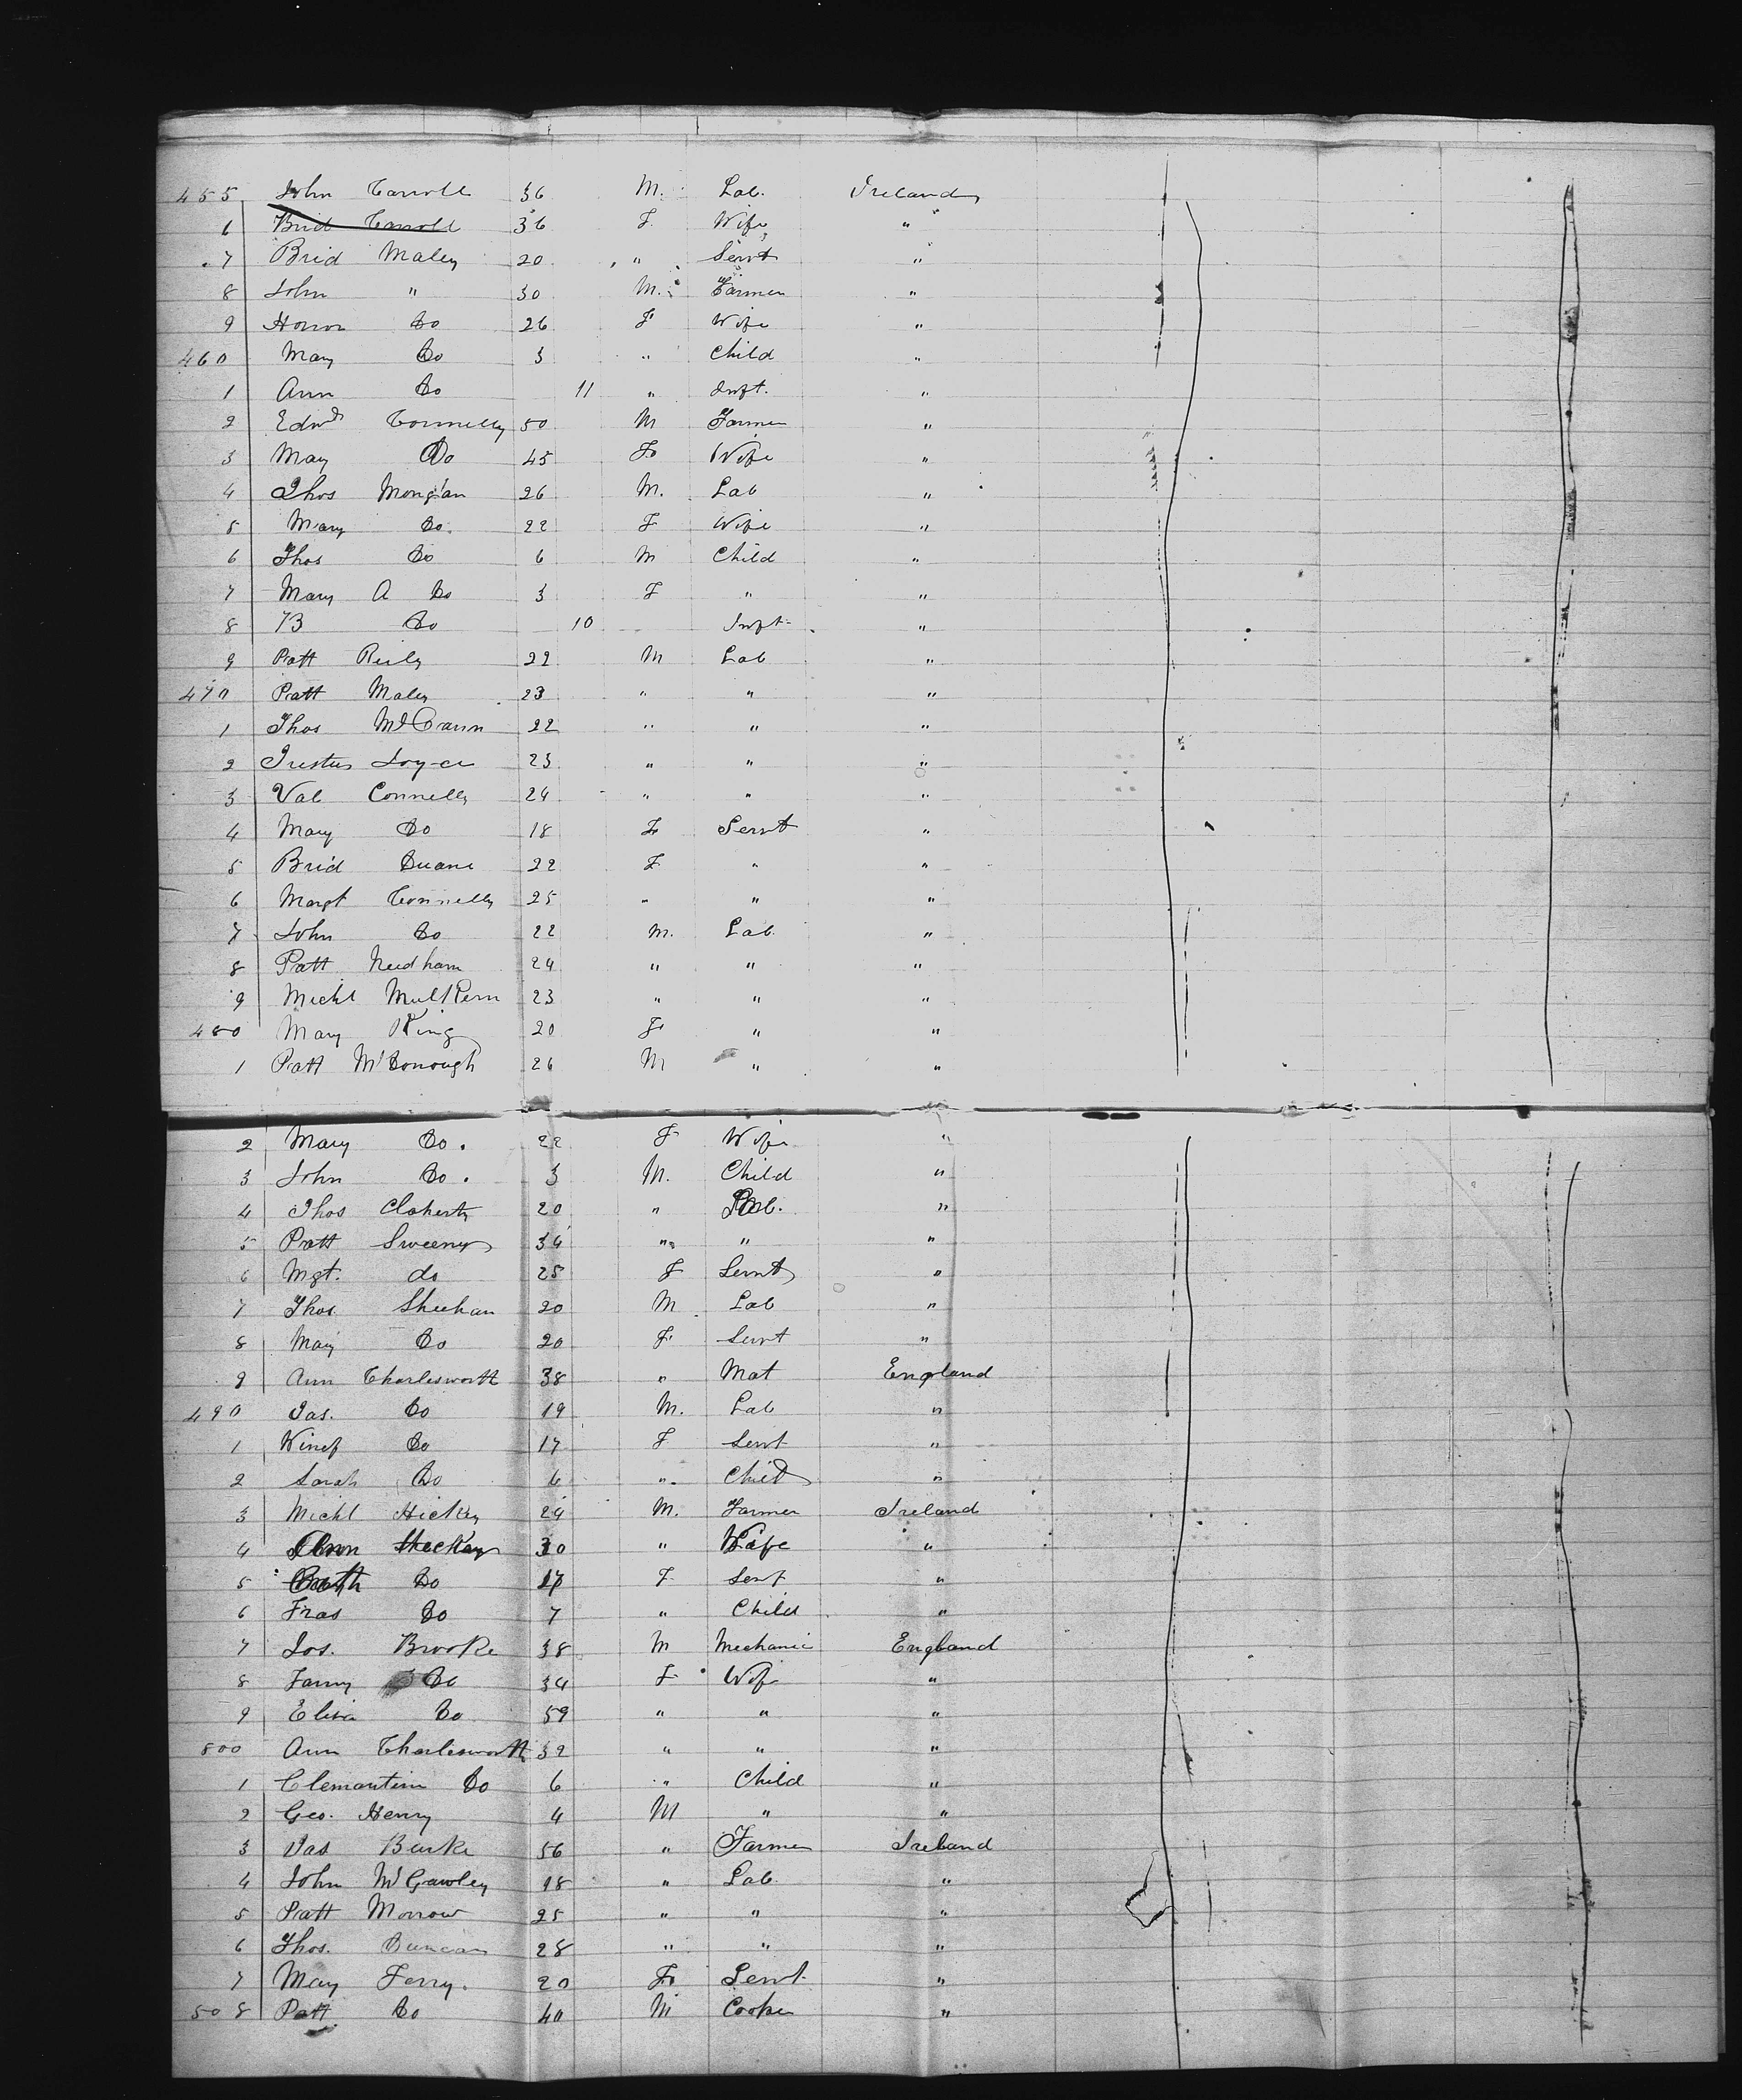 455 John Carroll 36 M. Lab. Ireland
6 Brid Carroll 36 F. Wife "
7 Brid Maley 20 " Servt "
8 John " 30 M. Farmer "
9 Honor Do 26 F Wife "
460 Mary Do 3 " Child "
1 Ann Do 11 " Inft. "
2 Edwd Connelly 50 M Farmer "
3 Mary Do 45 F Wife "
4 Thos Mongan 26 M. Lab "
5 Mary Do. 22 F Wife "
6 Thos Do 6 M Child "
7 Mary A Do 3 F " "
8 B Do 10 Inft. "
9 Patt Reily 22 M Lab "
470 Patt Maley 23 " " "
1 Thos McCann 22 " " "
2 Festus Joyce 23 " " "
3 Val Connelly 24 " " "
4 Mary Do 18 F Servt "
5 Brid Duane 22 F " "
6 Margt Connelly 25 " " "
7 John Do 22 M. Lab "
8 Patt Needham 24 " " "
9 Michl Mulkern 23 " " "
480 Mary King 20 F " "
1 Patt McDonough 26 M " "
2 Mary Do. 22 F Wife "
3 John Do. 3 M. Child "
4 Thos Cloherty 20 " Lab. "
5 Patt Sweeney 34 " " "
6 Mgt. do 25 F Servt "
7 Thos. Sheehan 20 M Lab "
8 Mary Do 20 F Servt "
9 Ann Charlesworth 38 " Mat England
490 Jas. Do 19 M. Lab "
1 Winef Do 17 F Servt "
2 Sarah Do 6 " Child "
3 Michl Hickey 24 M. Farmer Ireland
4 Ann Hickey 30 " Wife "
5 Cath Do 17 F Servt "
6 Fras Do 7 " Child "
7 Jos. Brooke 38 M Mechanic England
8 Fanny Do 34 F Wife "
9 Eliza Do 59 " " "
500 Ann Charlesworth 32 " " "
1 Clemantine Do 6 " Child "
2 Geo. Henry 4 M " "
3 Jas Burke 56 " Farmer Ireland
4 John McGawley 18 " Lab. "
5 Patt Morrow 25 " " "
6 Thos. Duncan 28 " " "
7 Mary Ferry. 20 F Servt "
508 Patt Do 40 M Cooper "